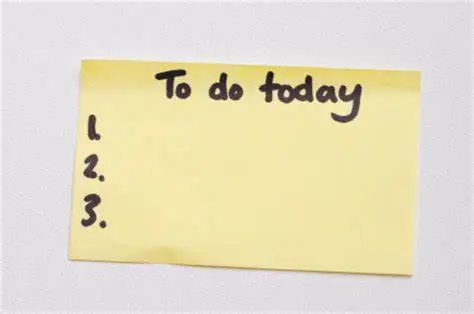 To do today
1.
2.
3.